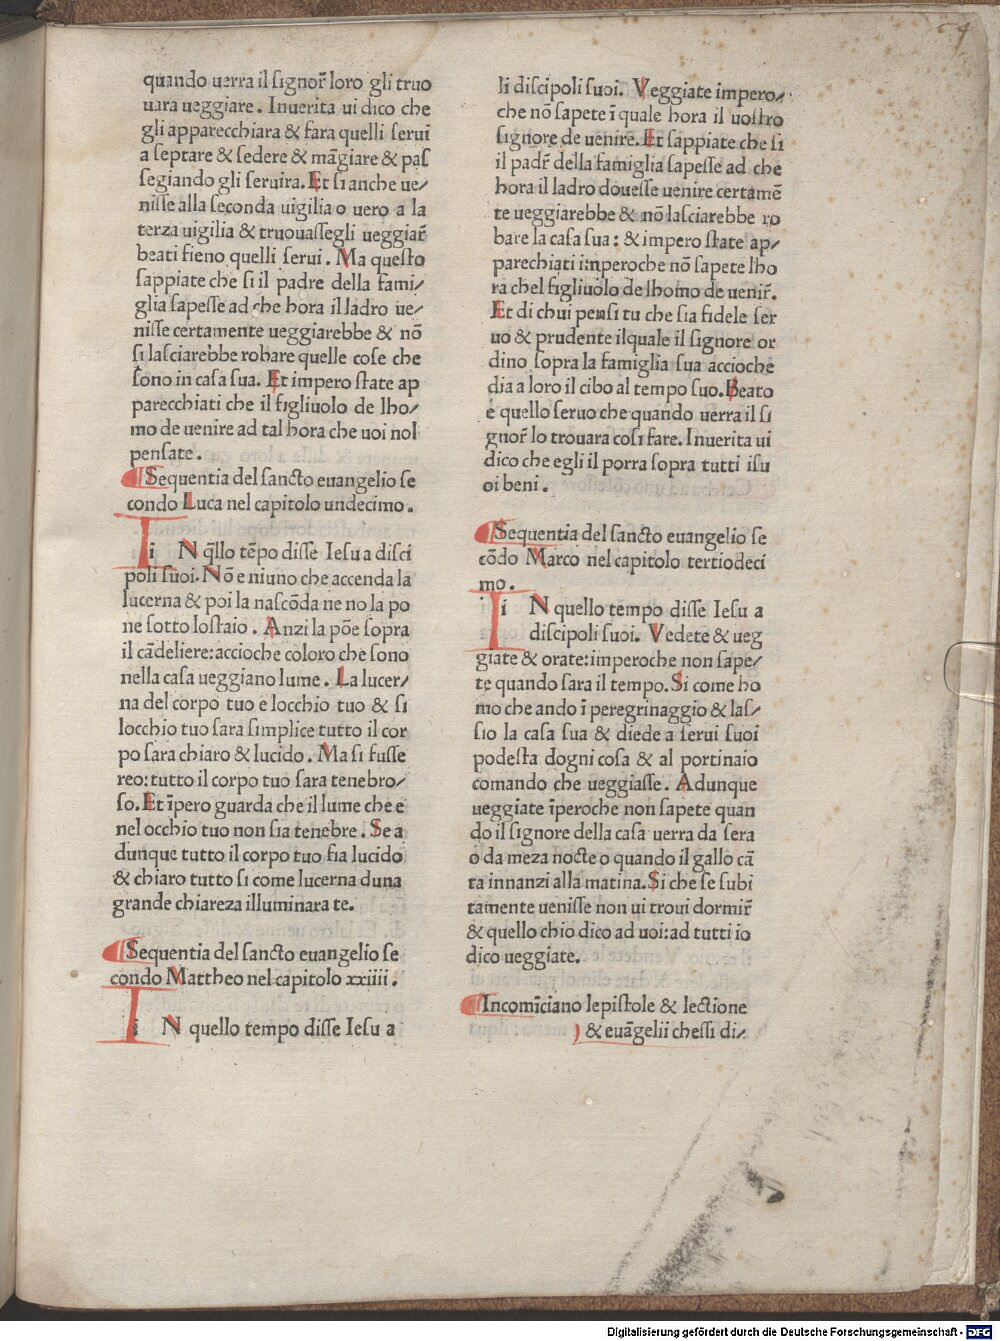 quando uerra il signor̄ loro gli truo
uara ueggiare. Inuerita ui dico che
gli apparecchiara & fara quelli seruī
a septare & sedere & māgiare & pas
segiando gli seruira. Et si anche ue/
nisse alla seconda uigilia o uero a la
terza uigilia & truouassegli ueggiar̄
beati fieno quelli serui. Ma questo
sappiate che si il padre della fami/
glia sapesse ad che hora il ladro ue/
nisse certamente ueggiarebbe & nō
si lasciarebbe robare quelle cose che
sono in casa sua. Et impero state ap
parecchiati che il figliuolo de lho/
mo de uenire ad tal hora che uoi nol
pensate.
¶Sequentia del sancto euangelio se
condo Luca nel capitolo undecimo.
i N q̄llo tēpo disse Iesu a disci
poli suoi. Nō e niuno che accenda la
lucerna & poi la nascōda ne no la po
ne sotto lostaio. Anzi la pōe sopra
il cādeliere: accioche coloro che sono
nella casa ueggiano lume. La lucer/
na del corpo tuo e locchio tuo & si
locchio tuo sara simplice tutto il cor
po sara chiaro & lucido. Ma si fusse
reo: tutto il corpo tuo sara tenebro/
so. Et īpero guarda che il lume che e
nel occhio tuo non sia tenebre. Se a
dunque tutto il corpo tuo fia lucido
& chiaro tutto si come lucerna duna
grande chiareza illuminara te.
¶Sequentia del sancto euangelio se
condo Mattheo nel capitolo xxiiii.
i N quello tempo disse Iesu a
li discipoli suoi. Veggiate impero/
che nō sapete ī quale hora il uostro
signore de uenire. Et sappiate che si
il padr̄ della famiglia sapesse ad che
hora il ladro douesse uenire certamē
te ueggiarebbe & nō lasciarebbe ro
bare la casa sua: & impero state ap/
parechiati imperoche nō sapete lho
ra chel figliuolo de lhomo de uenir̄.
Et di chui pensi tu che sia fidele ser
uo & prudente ilquale il signore or
dino sopra la famiglia sua accioche
dia a loro il cibo al tempo suo. Beato
e quello seruo che quando uerra il si
gnor̄ lo trouara cosi fare. Inuerita ui
dico che egli il porra sopra tutti isu
oi beni.
¶Sequentia del sancto euangelio se
cōdo Marco nel capitolo tertiodeci
mo.
i N quello tempo disse Iesu a
discipoli suoi. Vedete & ueg
giate & orate: imperoche non sape/
te quando sara il tempo. Si come ho
mo che ando ī peregrinaggio & las/
sio la casa sua & diede a serui suoi
podesta dogni cosa & al portinaio
comando che ueggiasse. Adunque
ueggiate īperoche non sapete quan
do il signore della casa uerra da sera
o da meza nocte o quando il gallo cā
ta innanzi alla matina. Si che se subi
tamente uenisse non ui troui dormir̄
& quello chio dico ad uoi: ad tutti io
dico ueggiate.
¶Incomīciano lepistole & lectione
) & euāgelii chessi di/
Digitalisierung gefördert durch die Deutsche Forschungsgemeinschaft - DFG